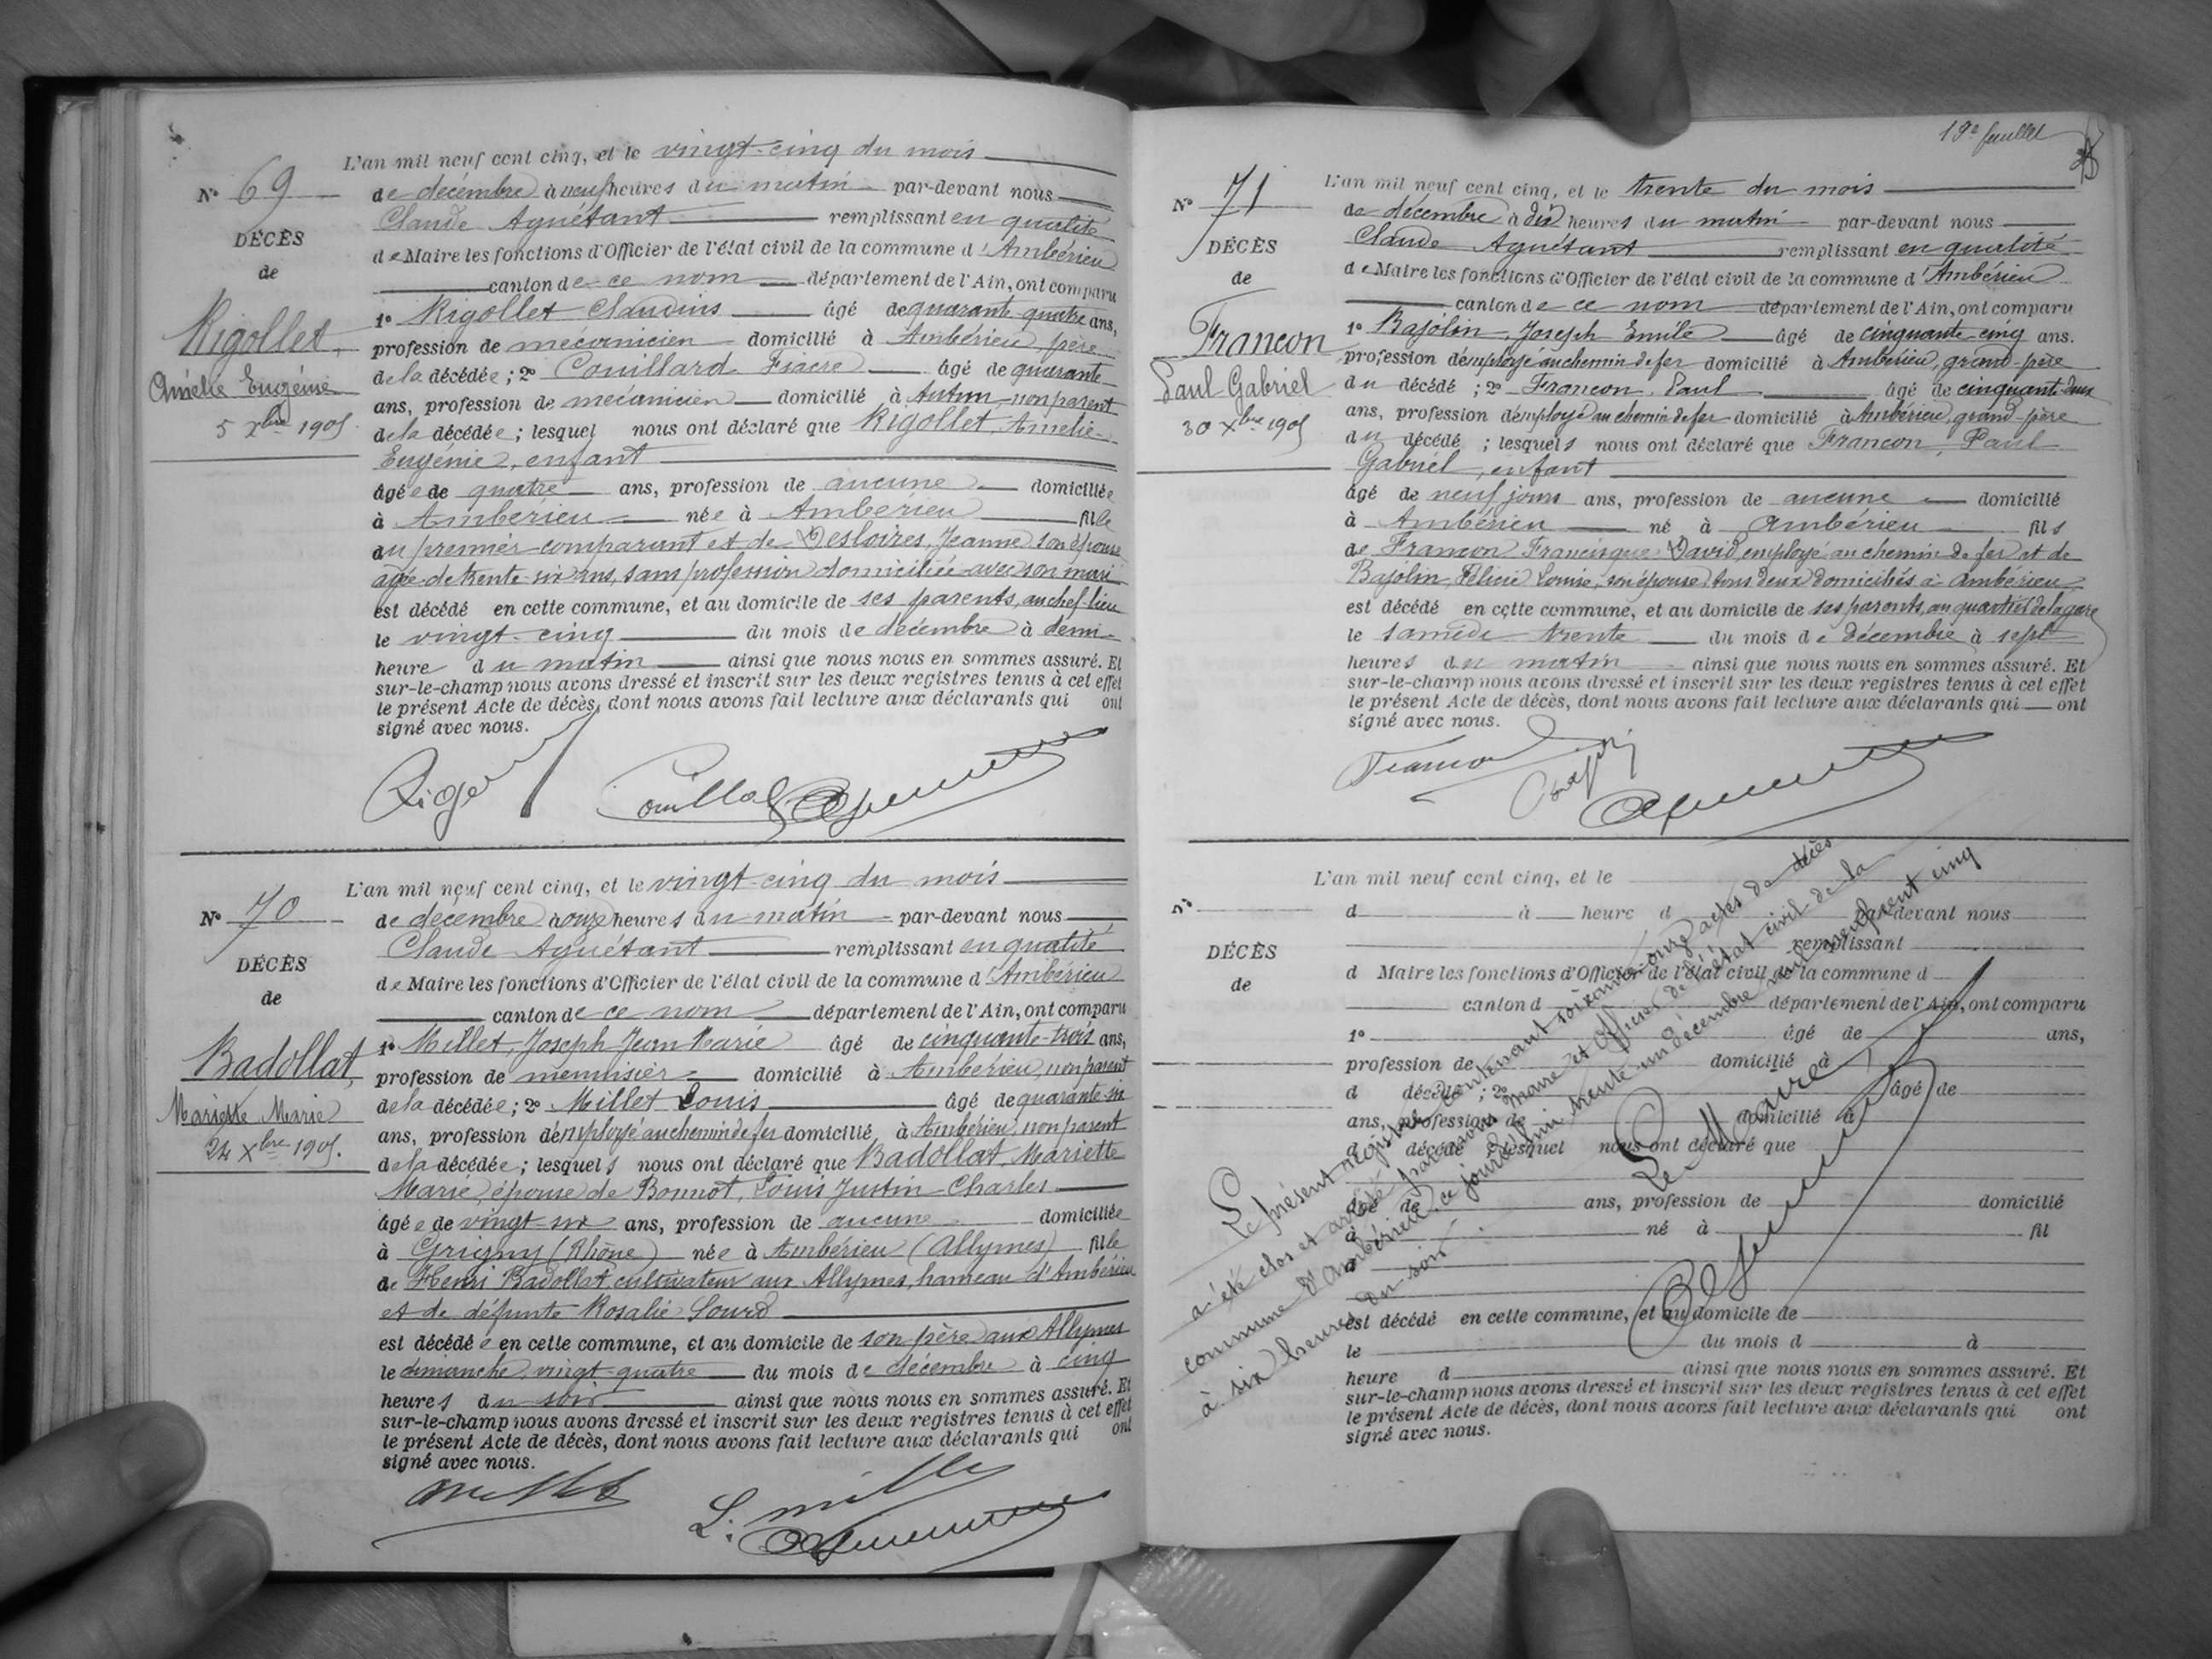 L'an mil neuf cent cinq, et le vingt-cinq du mois
N° 69
de décembre à neuf heures du matin par-devant nous
Claude Aguétant remplissant en qualité
DÉCÈS
de Maire les fonctions d'Officier de l'état civil de la commune d'Ambérieu
de
canton de ce nom département de l'Ain, ont comparu
Rigollet
1° Rigollet Claudius âgé de quarante-quatre ans,
profession de mécanicien domicilié à Ambérieu père
Amélie Eugénie
de la décédée ; 2° Couillard Fiacre âgé de quarante
ans, profession de mécanicien domicilié à Autun non parent
5 Xbre 1905
de la décédée ; lesquel nous ont déclaré que Rigollet, Amélie
Eugénie, enfant
âgée de quatre ans, profession de aucune domiciliée
à Ambérieu née à Ambérieu fille
du premier comparant et de Desloires, Jeanne son épouse
agée de trente-six ans, sans profession domiciliée avec son mari
est décédé en cette commune, et au domicile de ses parents, au chef-lieu
le vingt-cinq du mois de décembre à demi-
heure du matin ainsi que nous nous en sommes assuré. Et
sur-le-champ nous avons dressé et inscrit sur les deux registres tenus à cet effet
le présent Acte de décès, dont nous avons fait lecture aux déclarants qui ont
signé avec nous.
L'an mil neuf cent cinq, et le vingt-cinq du mois
N° 70
de décembre à onze heures du matin par-devant nous
Claude Aguétant remplissant en qualité
DÉCÈS
de Maire les fonctions d'Officier de l'état civil de la commune d'Ambérieu
de
canton de ce nom département de l'Ain, ont comparu
Badollat,
1° Millet, Joseph Jean Marie âgé de cinquante-trois ans,
profession de menuisier domicilié à Ambérieu, non parent
Mariette Marie
de la décédée ; 2° Millet Louis âgé de quarante-six
24 Xbre 1905.
ans, profession d'employé au chemin de fer domicilié à Ambérieu, non parent
de la décédée ; lesquels nous ont déclaré que Badollat, Mariette
Marie, épouse de Bonnot, Louis Justin Charles
âgée de vingt-six ans, profession de aucune domiciliée
à Grigny (Rhône) née à Ambérieu (Allymes) fille
de Henri Badollat, cultivateur aux Allymes, hameau d'Ambérieu
et de défunte Rosalie Sourd
est décédée en cette commune, et au domicile de son père aux Allymes
le dimanche, vingt-quatre du mois de décembre à cinq
heures du soir ainsi que nous nous en sommes assuré. Et
sur-le-champ nous avons dressé et inscrit sur les deux registres tenus à cet effet
le présent Acte de décès, dont nous avons fait lecture aux déclarants qui ont
signé avec nous.
L. Millet
19e feuillet
L'an mil neuf cent cinq, et le trente du mois
N° 71
de décembre à dix heures du matin par-devant nous
DÉCÈS
Claude Aguétant remplissant en qualité
de Maire les fonctions d'Officier de l'état civil de la commune d'Ambérieu
de
canton de ce nom département de l'Ain, ont comparu
Francon
1° Bajolin, Joseph Emile âgé de cinquante-cinq ans.
profession d'employé au chemin de fer domicilié à Ambérieu, grand-père
Paul Gabriel
du décédé ; 2° Francon, Paul âgé de cinquante-deux
30 Xbre 1905
ans, profession d'employé au chemin de fer domicilié à Ambérieu, grand-père
du décédé ; lesquels nous ont déclaré que Francon, Paul
Gabriel, enfant
âgé de neuf jours ans, profession de aucune domicilié
à Ambérieu né à Ambérieu fils
de Francon Francisque David, employé au chemin de fer et de
Bajolin, Félicie Louise, son épouse, tous deux domiciliés à Ambérieu
est décédé en cette commune, et au domicile de ses parents, au quartier de la gare
le samedi trente du mois de décembre à sept
heures du matin ainsi que nous nous en sommes assuré. Et
sur-le-champ nous avons dressé et inscrit sur les deux registres tenus à cet effet
le présent Acte de décès, dont nous avons fait lecture aux déclarants qui ont
signé avec nous.
Francon
L'an mil neuf cent cinq, et le
N°
d à heure d par-devant nous
remplissant
DÉCÈS
d Maire les fonctions d'Officier de l'état civil de la commune d
de
canton d département de l'Ain, ont comparu
1° âgé de ans,
profession de domicilié à
d décédé ; 2° âgé de
ans, profession de domicilié à
d décédé ; lesquel nous ont déclaré que
âgé de ans, profession de domicilié
à né à fil
d
est décédé en cette commune, et au domicile de
le du mois d à
heure d ainsi que nous nous en sommes assuré. Et
sur-le-champ nous avons dressé et inscrit sur les deux registres tenus à cet effet
le présent Acte de décès, dont nous avons fait lecture aux déclarants qui ont
signé avec nous.
Le présent registre contenant soixante-onze actes de décès
a été clos et arrêté par nous Maire et Officier de l'état civil de la
commune d'Ambérieu, ce jourd'hui trente un décembre mil neuf cent cinq
à six heures du soir.
Le Maire